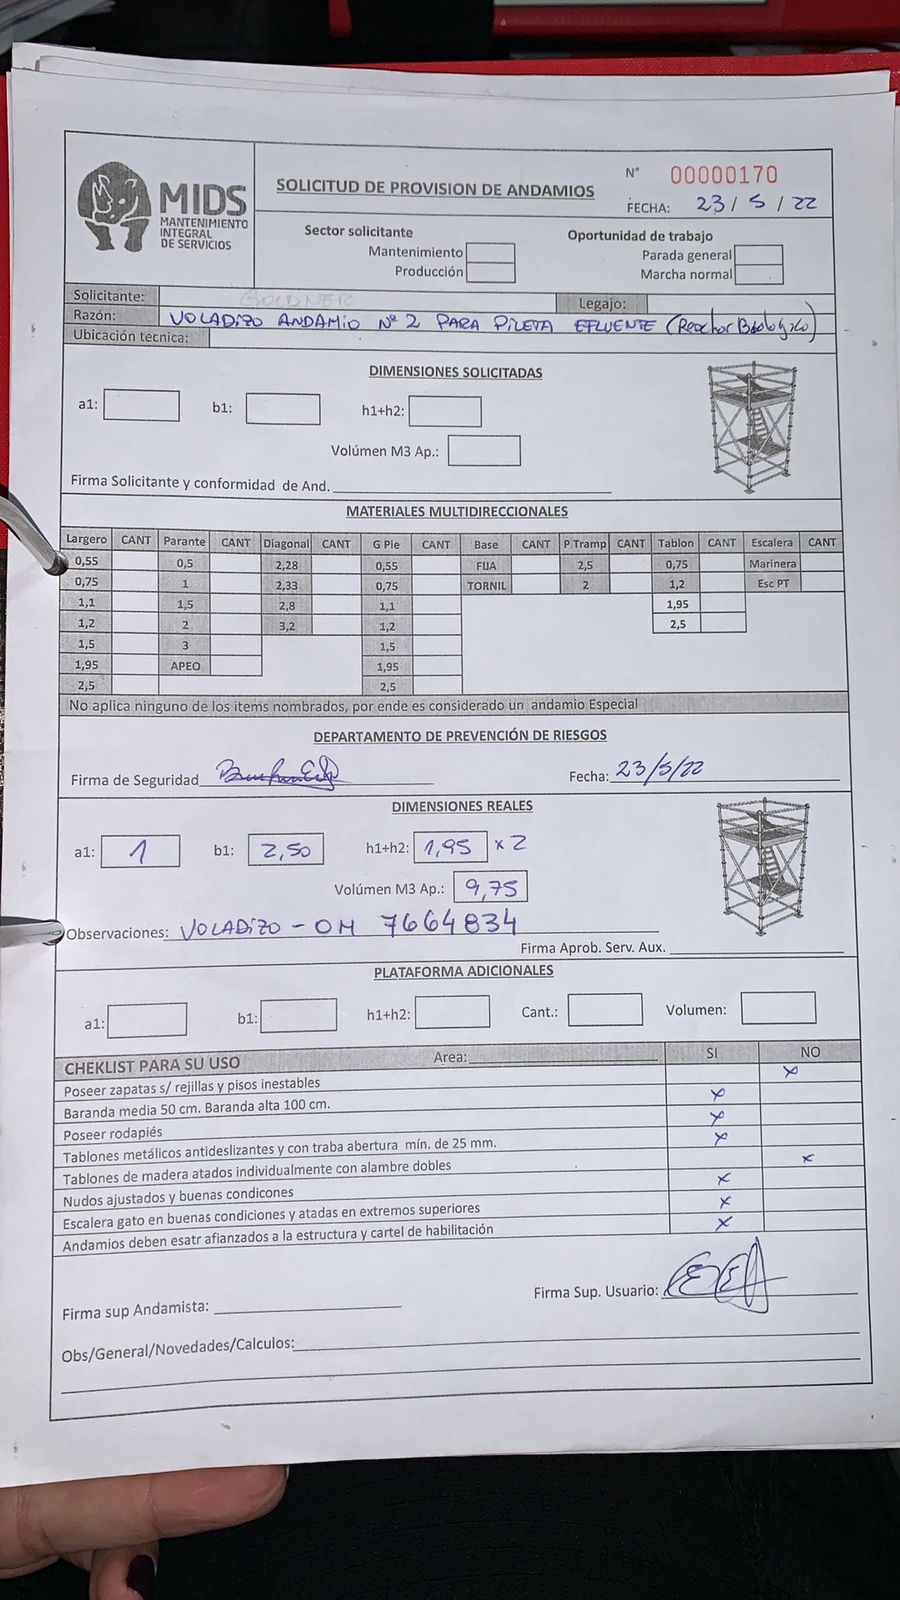 MIDS
MANTENIMIENTO
INTEGRAL
DE SERVICIOS
SOLICITUD DE PROVISION DE ANDAMIOS
N° 00000170
FECHA: 23 / 5 / 22
Sector solicitante
Mantenimiento
Producción
Oportunidad de trabajo
Parada general
Marcha normal
Solicitante: GOLDNER Legajo:
Razón: VOLADIZO ANDAMIO Nº 2 PARA PILETA EFLUENTE (Reactor Biologico)
Ubicación tecnica:
DIMENSIONES SOLICITADAS
a1: b1: h1+h2:
Volúmen M3 Ap.:
Firma Solicitante y conformidad de And.
MATERIALES MULTIDIRECCIONALES
Largero CANT Parante CANT Diagonal CANT G Pie CANT Base CANT P Tramp CANT Tablon CANT Escalera CANT
0,55 0,5 2,28 0,55 FIJA 2,5 0,75 Marinera
0,75 1 2,33 0,75 TORNIL 2 1,2 Esc PT
1,1 1,5 2,8 1,1 1,95
1,2 2 3,2 1,2 2,5
1,5 3 1,5
1,95 APEO 1,95
2,5 2,5
No aplica ninguno de los items nombrados, por ende es considerado un andamio Especial
DEPARTAMENTO DE PREVENCIÓN DE RIESGOS
Firma de Seguridad Fecha: 23/5/22
DIMENSIONES REALES
a1: 1 b1: 2,50 h1+h2: 1,95 x 2
Volúmen M3 Ap.: 9,75
Observaciones: VOLADIZO - OM 7664834
Firma Aprob. Serv. Aux.
PLATAFORMA ADICIONALES
a1: b1: h1+h2: Cant.: Volumen:
CHEKLIST PARA SU USO Area: SI NO
Poseer zapatas s/ rejillas y pisos inestables x
Baranda media 50 cm. Baranda alta 100 cm. x
Poseer rodapiés x
Tablones metálicos antideslizantes y con traba abertura mín. de 25 mm. x
Tablones de madera atados individualmente con alambre dobles x
Nudos ajustados y buenas condicones x
Escalera gato en buenas condiciones y atadas en extremos superiores x
Andamios deben esatr afianzados a la estructura y cartel de habilitación x
Firma sup Andamista: Firma Sup. Usuario:
Obs/General/Novedades/Calculos: